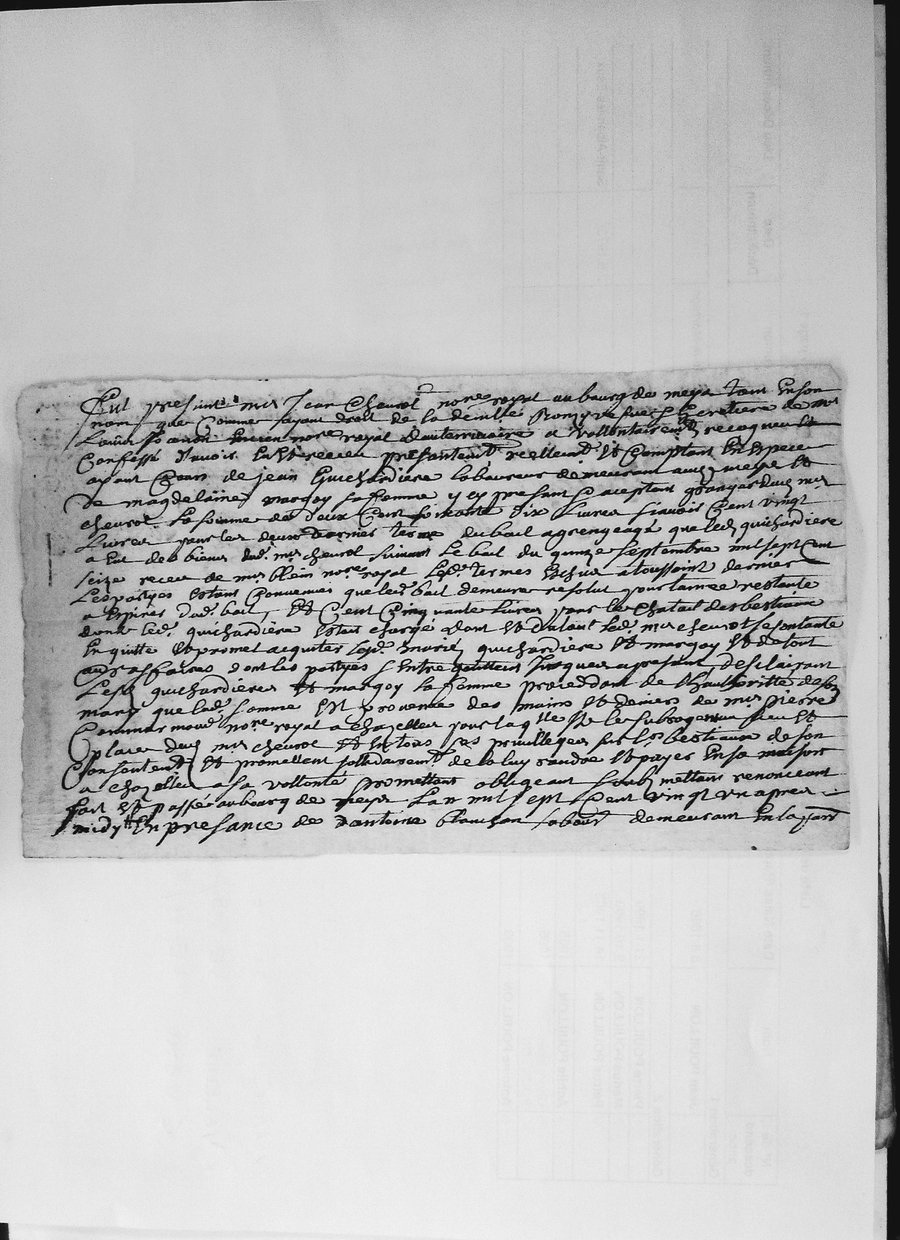 Fut present mre Jean Cheurot nore royal au bourg de meys tant En son
nom que Comme ayant droit de la deville
nore royal a vollontairemt recogneu et
Confessé d'avoir Eu et receu presentemt reellemt Et Comptant En Espece
ayant Cours de jean Guichardiere laboureur demeurant audt meys Et
de magdelaine margoy sa femme y cy presant Caceptant grangers dud. mre
cheurot La somme de deux Cent soixante dix Livres scavoir Cent vingt
Livres pour les deux dernier terme du bail a grengeage que led. guichardiere
a Eut des biens dud. mre cheurot suivant Le bail du quinze septembre mil sept Cent
seize receu de mre blein nore royal Lesd. termes Escheu a toussaint dernier
Les partyes Estans Convenues que led. bail demeure resolut pour l'année restante
a Expirer dud. bail, Et Cent Cinquante Livres pour le Chatail des bestiaux
dont led. guichardiere Estoit chargé dont Et du tout led. mre cheurot se contante
En quitte Et promet acquiter lesd. mariés guichardiere Et margoy Et de tout
affaires dont les partyes s'Entre quittent jusques a presant, desclairant
Lesd. guichardiere Et margoy sa femme proceddant de l'hauthoritté de son
mary que lad. somme Est provenue des mains Et deniers de mre pierre
nore royal a chazelles pour laqlle Il le subrogent au lieu Et
place dud. mre cheurot Et En tous ses privilleges sur les bestiaux de son
Consentemt Et promettent sollidairemt de la luy randre Et payer En sa maison
a chazelles a sa vollonté promettant obligeant soubmettant renonceant
fait Et passé au bourg de meys Lan mil sept Cent vingt un apres
midy En presance de anthoine blanchon labour demeurant En la parr